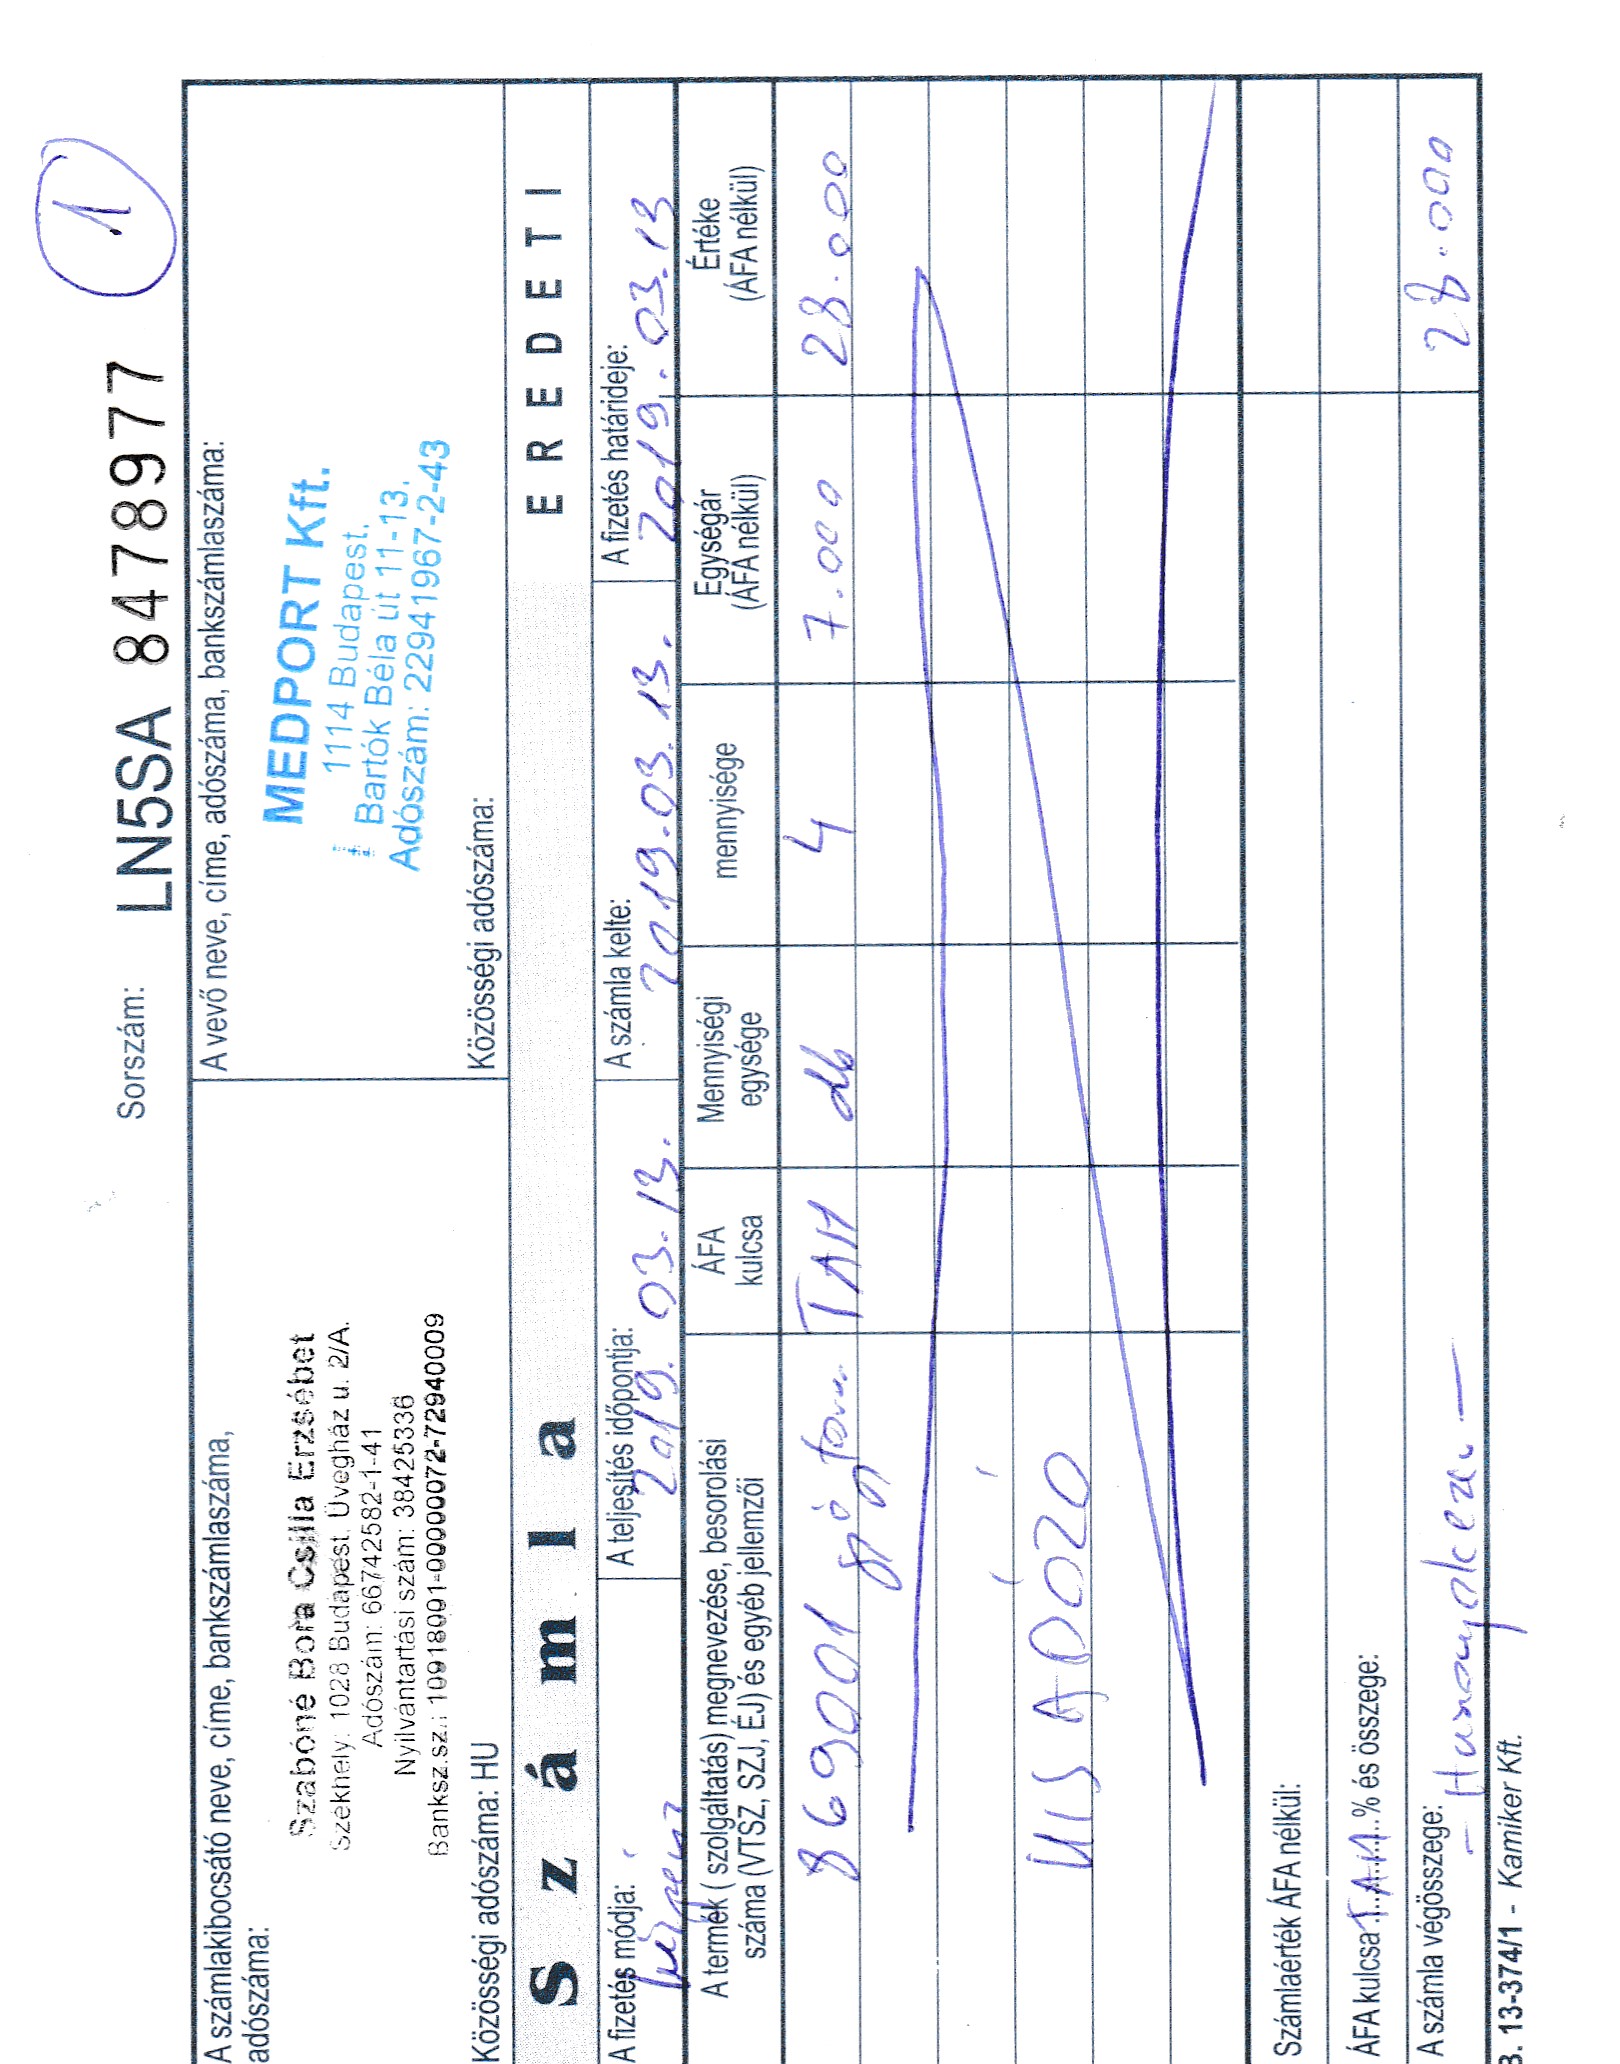 1
Sorszám: LN5SA 8478977
A számlakibocsátó neve, címe, bankszámlaszáma,
adószáma:
Szabóné Bora Csilla Erzsébet
Székhely: 1028 Budapest. Üvegház u. 2/A.
Adószám: 66742582-1-41
Nyilvántartási szám: 38425336
Banksz.sz.: 10918001-00000072-72940009
Közösségi adószáma: HU
A vevő neve, címe, adószáma, bankszámlaszáma:
MEDPORT Kft.
1114 Budapest.
Bartók Béla út 11-13.
Adószám: 22941967-2-43
Közösségi adószáma:
Számla EREDETI
A fizetés módja:
A teljesítés időpontja:
2019. 03. 13.
A számla kelte:
2019. 03. 13.
A fizetés határideje:
2019. 03. 13
A termék ( szolgáltatás) megnevezése, besorolási
száma (VTSZ, SZJ, ÉJ) és egyéb jellemzői
ÁFA
kulcsa
Mennyiségi
egysége
mennyisége
Egységár
(ÁFA nélkül)
Értéke
(ÁFA nélkül)
869001 gyógytorn. TAM db 4 7.000 28.000
KIS ADÓZÓ
Számlaérték ÁFA nélkül:
ÁFA kulcsa TAM % és összege:
A számla végösszege: 28.000
- Huszonyolcezer -
B. 13-374/1 - Kamiker Kft.